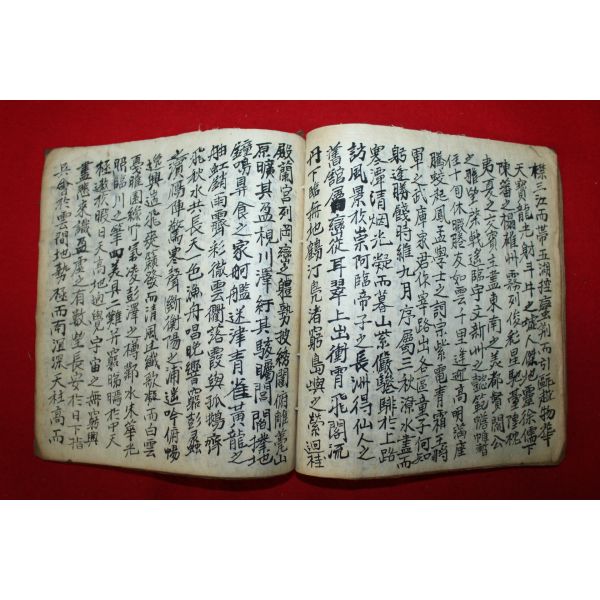 襟三江而帶五湖控蠻荊而引甌越物華
天寶龍光射斗牛之墟人傑地靈徐儒下
陳蕃之榻雄州霧列俊彩星馳臺隍枕
夷夏之交賓主盡東南之美都督閻公
之雅望棨戟遙臨宇文新州之懿範襜帷暫
住十旬休暇勝友如雲千里逢迎高朋滿座
騰蛟起鳳孟學士之詞宗紫電青霜王將
軍之武庫家君作宰路出名區童子何知
躬逢勝餞時維九月序屬三秋潦水盡而
寒潭清烟光凝而暮山紫儼驂騑於上路
訪風景於崇阿臨帝子之長洲得仙人之
舊舘層巒從耳翠上出衝霄飛閣流
丹下臨無地鶴汀鳧渚窮島嶼之縈迴桂
殿蘭宮列岡巒之體勢披繡闥俯雕甍山
原曠其盈視川澤紆其駭矚閭閻撲地
鐘鳴鼎食之家舸艦迷津青雀黃龍之
舳虹銷雨霽彩徹雲衢落霞與孤鶩齊
飛秋水共長天一色漁舟唱晚響窮彭蠡
之濱鴈陣驚寒聲斷衡陽之浦遙吟俯暢
逸興遄飛爽籟發而清風生纖歌凝而白雲
遏睢園綠竹氣凌彭澤之樽鄴水朱華光
照臨川之筆四美具二難并窮睇眄於中天
極遊於暇日天高地逈覺宇宙之無窮興
盡悲來識盈虛之有數望長安於日下指
吳會於雲間地勢極而南溟深天柱高而